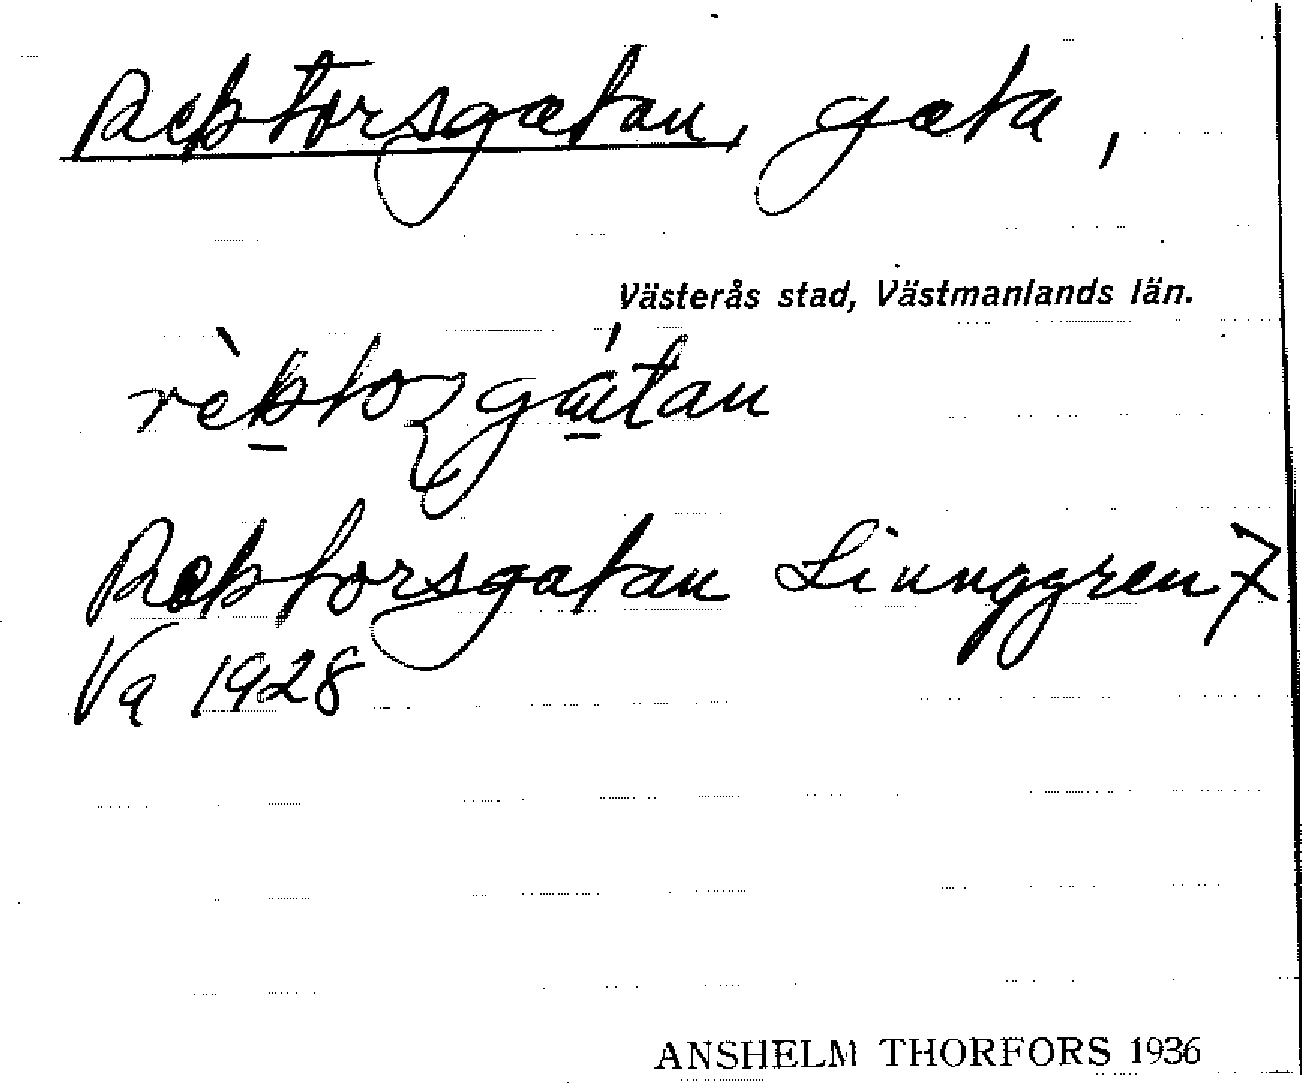 Rektorsgatan, gata,
Västerås stad, Västmanlands län.
Rektorsgatan Linnggren
Va 1928
ANSHELM THORFORS 1936